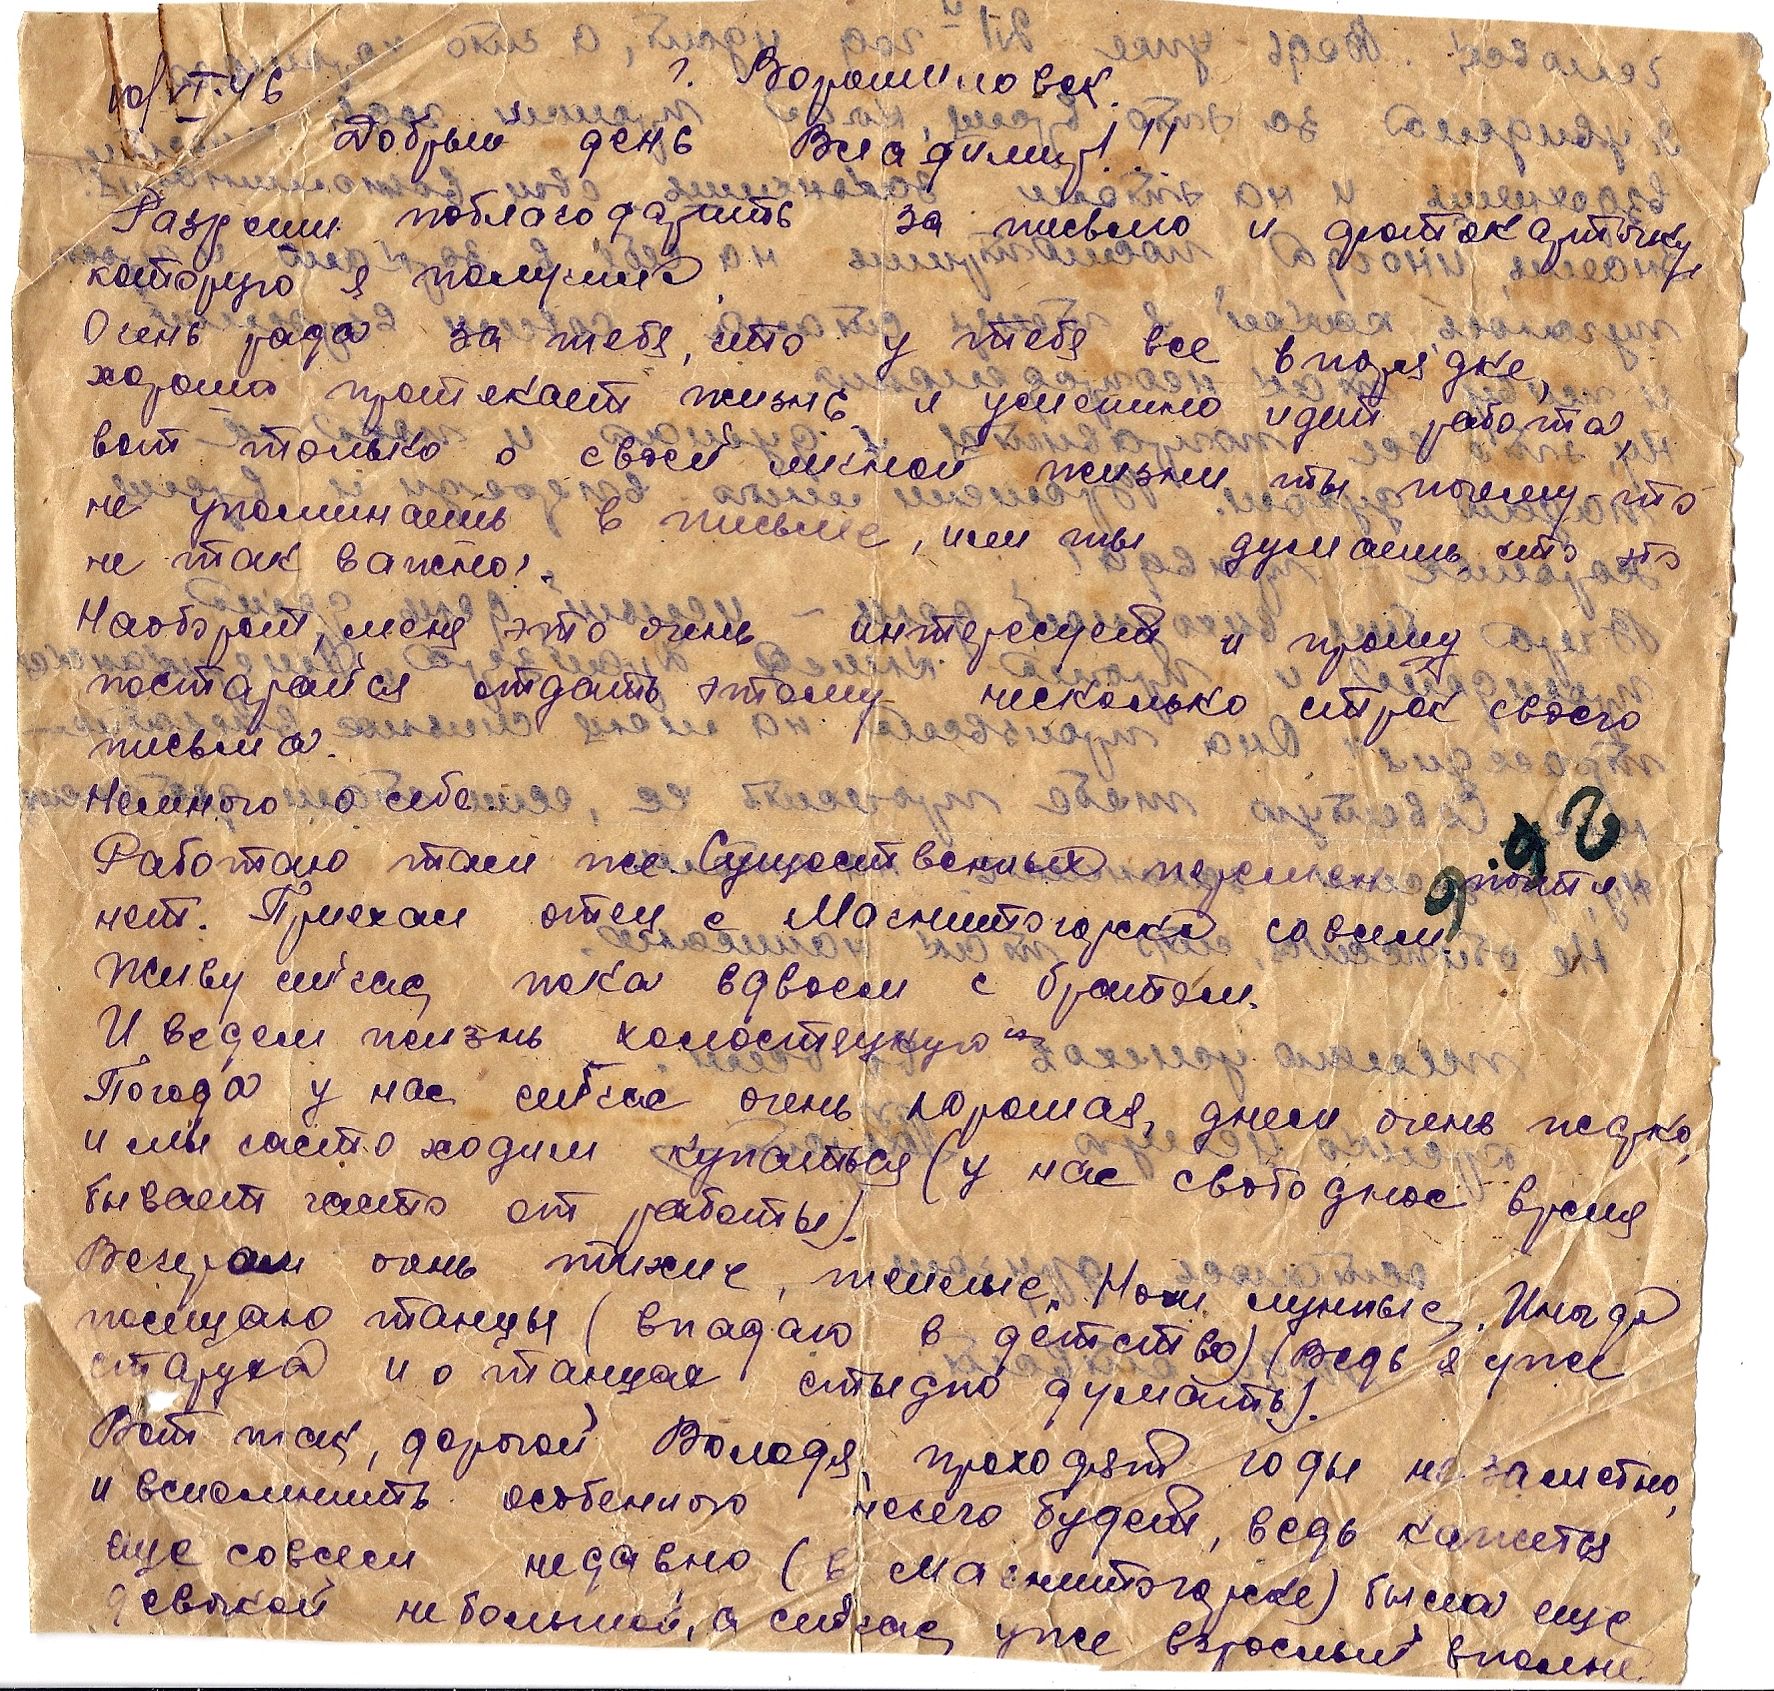 10/VI.46 г. Ворошиловск.
Добрый день Владимир!!!
Разреши поблагодарить за письмо и фотокарточку
которую я получила
Очень рада за тебя, что у тебя все в порядке,
хорошо протекает жизнь и успешно идет работа,
вот только о своей личной жизни ты почему то
не упоминаешь в письме, или ты думаешь, что это
не так важно?.
Наоборот, меня это очень интересует и прошу
постарайся отдать этому несколько строк своего
письма.
Немного о себе.
Работаю там же. Существенных перемен почти
нет. Приехал отец с Магнитогорска совсем.
Живу сейчас пока вдвоем с братом.
И ведем жизнь „холостяцкую"
Погода у нас сейчас очень хорошая, днем очень жарко,
и мы часто ходим купаться (у нас свободное время
бывает часто от работы).
Вечерам очень тихие, теплые. Ночи лунные. Иногда
посещаю танцы (впадаю в детство) (Ведь я уже
старуха и о танцах стыдно думать).
Вот так, дорогой Володя, проходят годы незаметно,
и вспомнить особенного нечего будет, ведь кажется
еще совсем недавно (в Магнитогорске) была еще
девчкой небольшой, а сейчас уже взрослый вполне